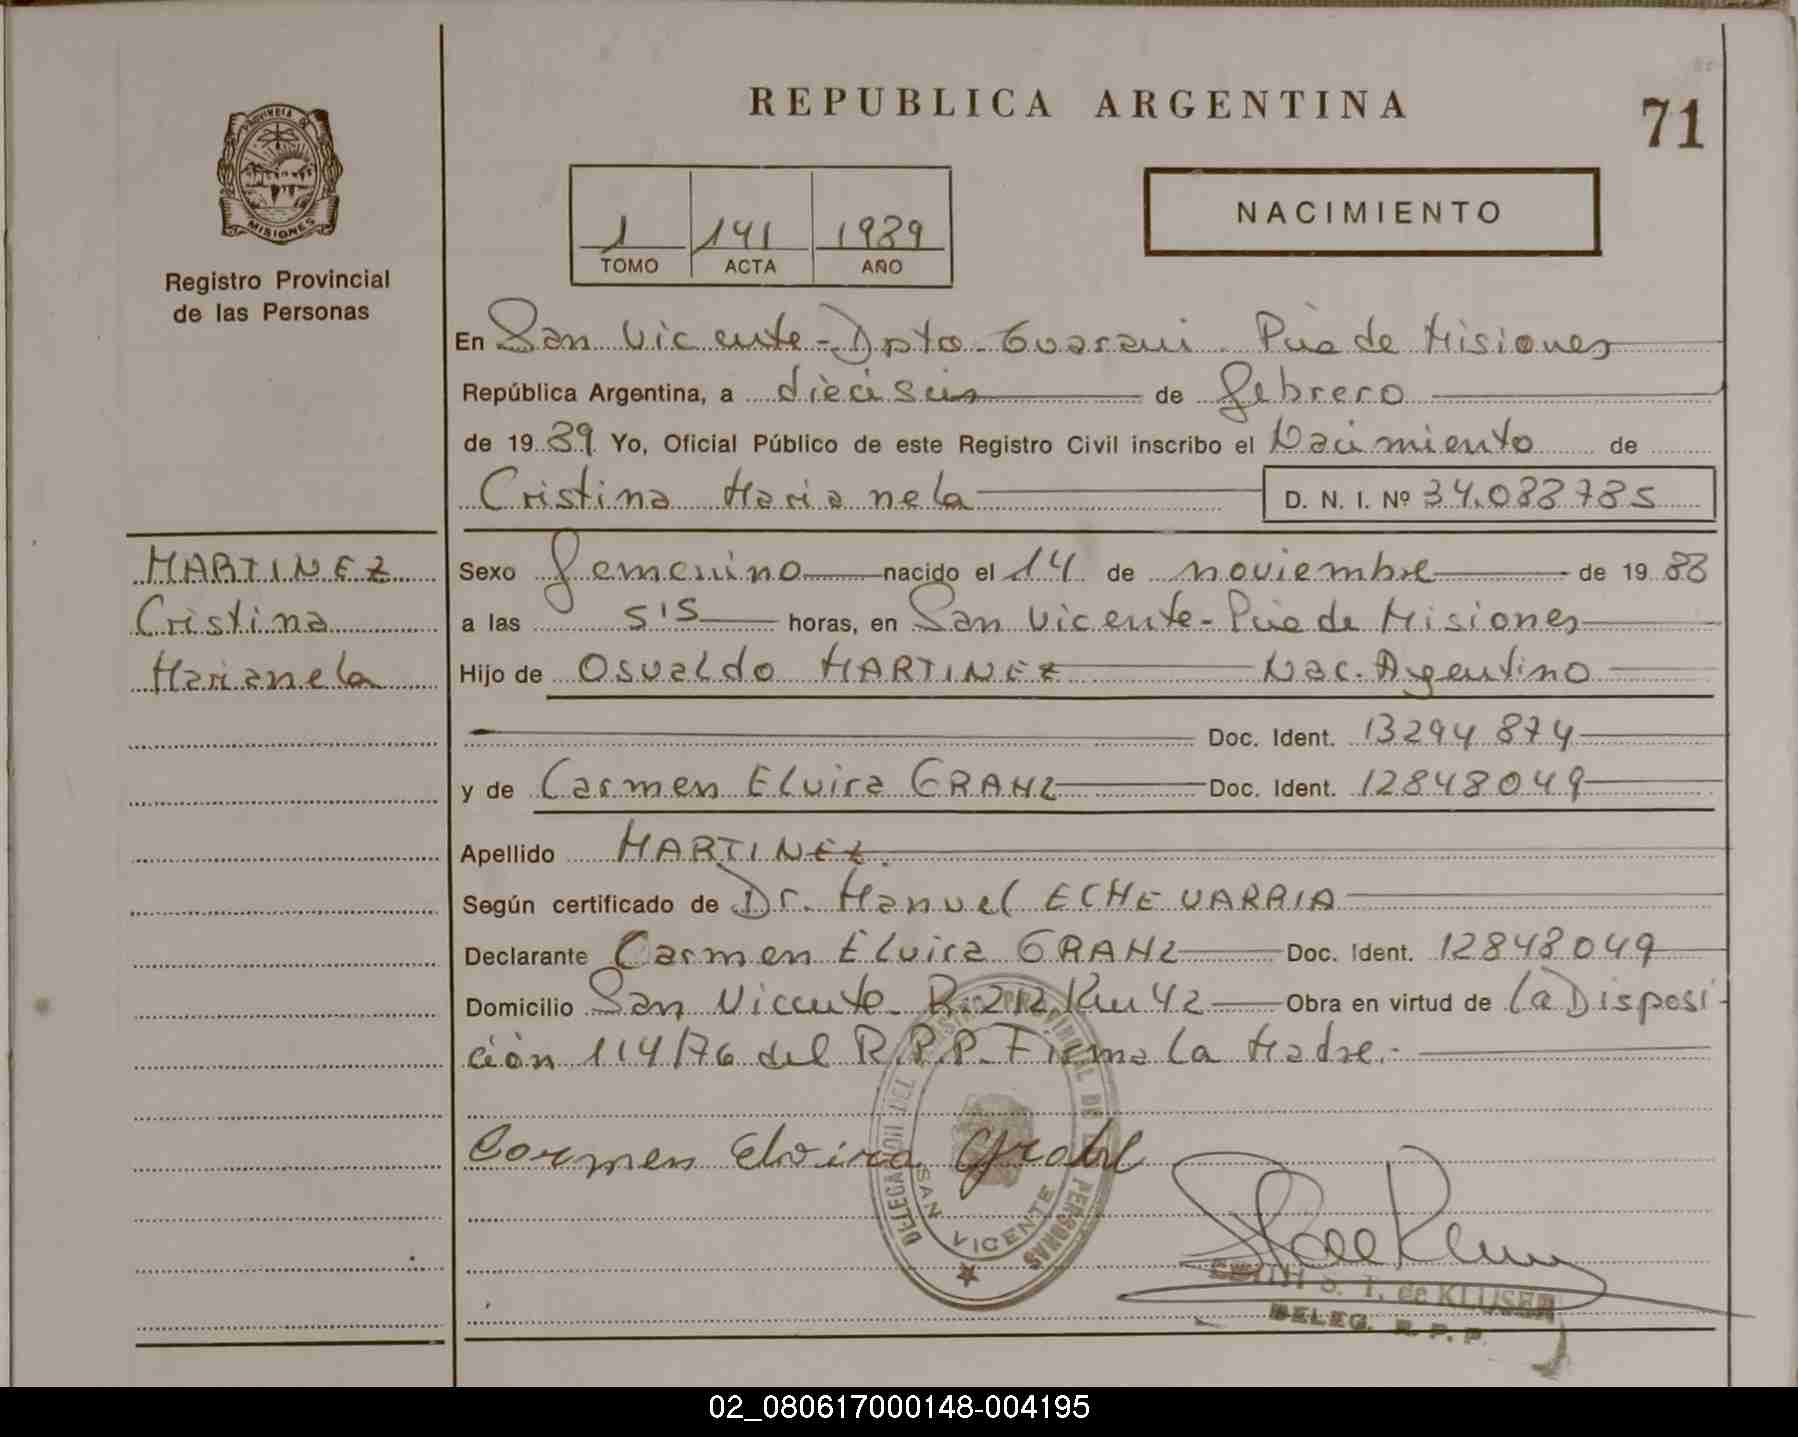 REPUBLICA ARGENTINA
71
PROVINCIA DE
MISIONES
Registro Provincial
de las Personas
1 141 1989
TOMO ACTA AÑO
NACIMIENTO
En San Vicente - Dpto. Guarani Pcia de Misiones
República Argentina, a dieciseis de febrero
de 19 89 Yo, Oficial Público de este Registro Civil inscribo el Nacimiento de
Cristina Marianela D. N. I. Nº 34.088785
MARTINEZ
Cristina
Marianela
Sexo femenino nacido el 14 de noviembre de 19 88
a las 5'5 horas, en San Vicente - Pcia de Misiones
Hijo de Osvaldo MARTINEZ Nac. Argentino
Doc. Ident. 13294874
y de Carmen Elvira GRAHL Doc. Ident. 12848049
Apellido MARTINEZ.
Según certificado de Dr. Manuel ECHEVARRIA
Declarante Carmen Elvira GRAHL Doc. Ident. 12848049
Domicilio San Vicente R. 212 Km 42 Obra en virtud de la Disposi-
ción 114/76 del R.P.P. Firma la Madre.-
Carmen Elvira Grahl
DELEGACION DEL REGISTRO PROVINCIAL DE LAS PERSONAS
SAN VICENTE
S. T. de KLUSER
DELEG. R. P. P.
02_080617000148-004195